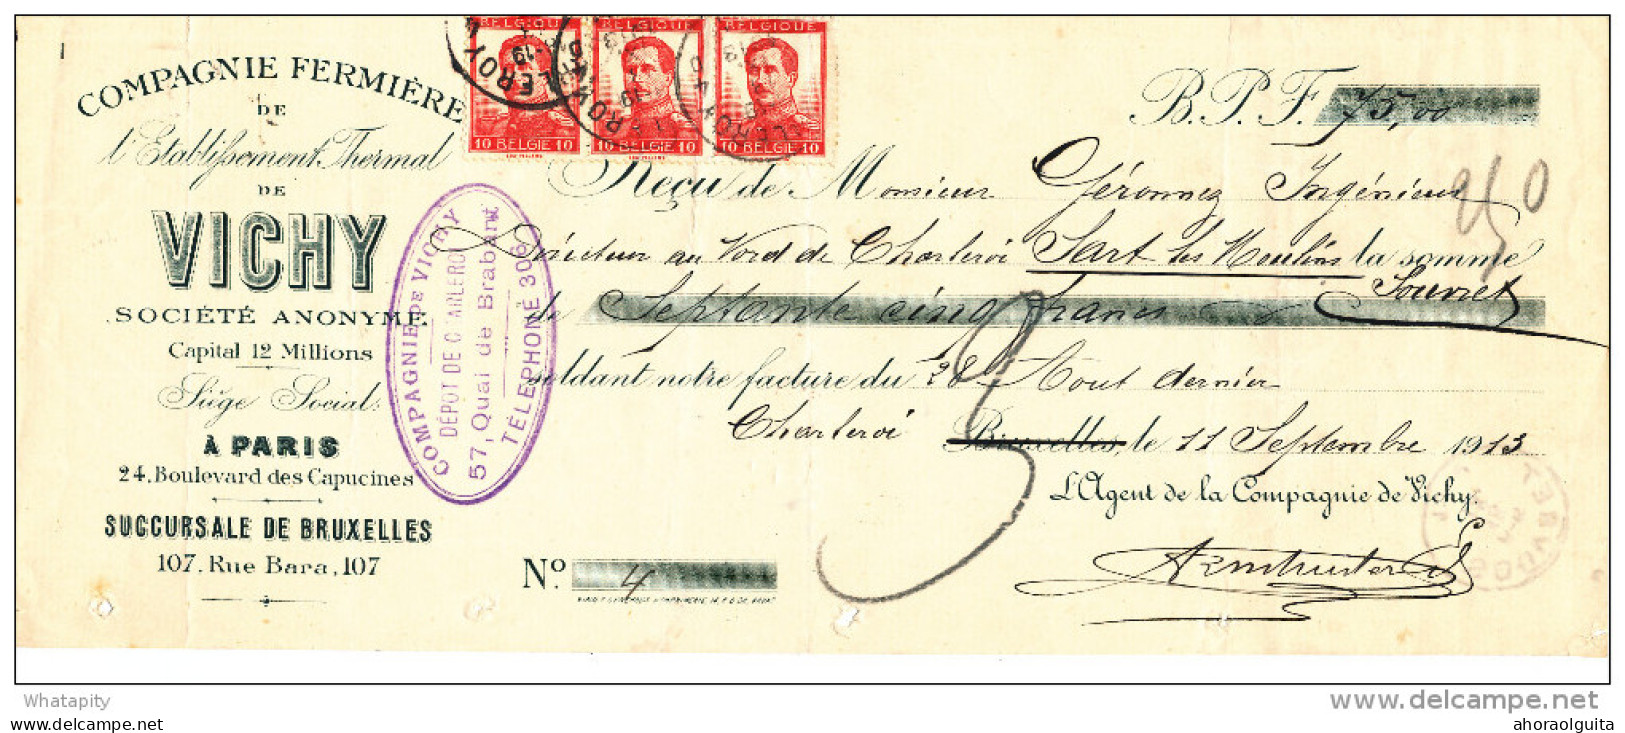 COMPAGNIE FERMIÈRE
DE
l'Etablissement Thermal
DE
VICHY
SOCIÉTÉ ANONYME
Capital 12 Millions
Siège Social:
À PARIS
24, Boulevard des Capucines
SUCCURSALE DE BRUXELLES
107, Rue Bara, 107
BELGIQUE
10 BELGIE 10
BELGIQUE
10 BELGIE 10
BELGIQUE
10 BELGIE 10
COMPAGNIE DE VICHY
DÉPÔT DE CHARLEROI
57, Quai de Brabant
TÉLÉPHONE 306
B.P.F. 75,00
Reçu de Monsieur Géronnez Ingénieur
Directeur au Nord de Charleroi Sart les Moulins la somme
Souvret
de Septante cinq francs
soldant notre facture du 28 Aout dernier
Charleroi Bruxelles, le 11 Septembre 1913
L'Agent de la Compagnie de Vichy.
No. 4
Whatapity
www.delcampe.net
ahoraolguita